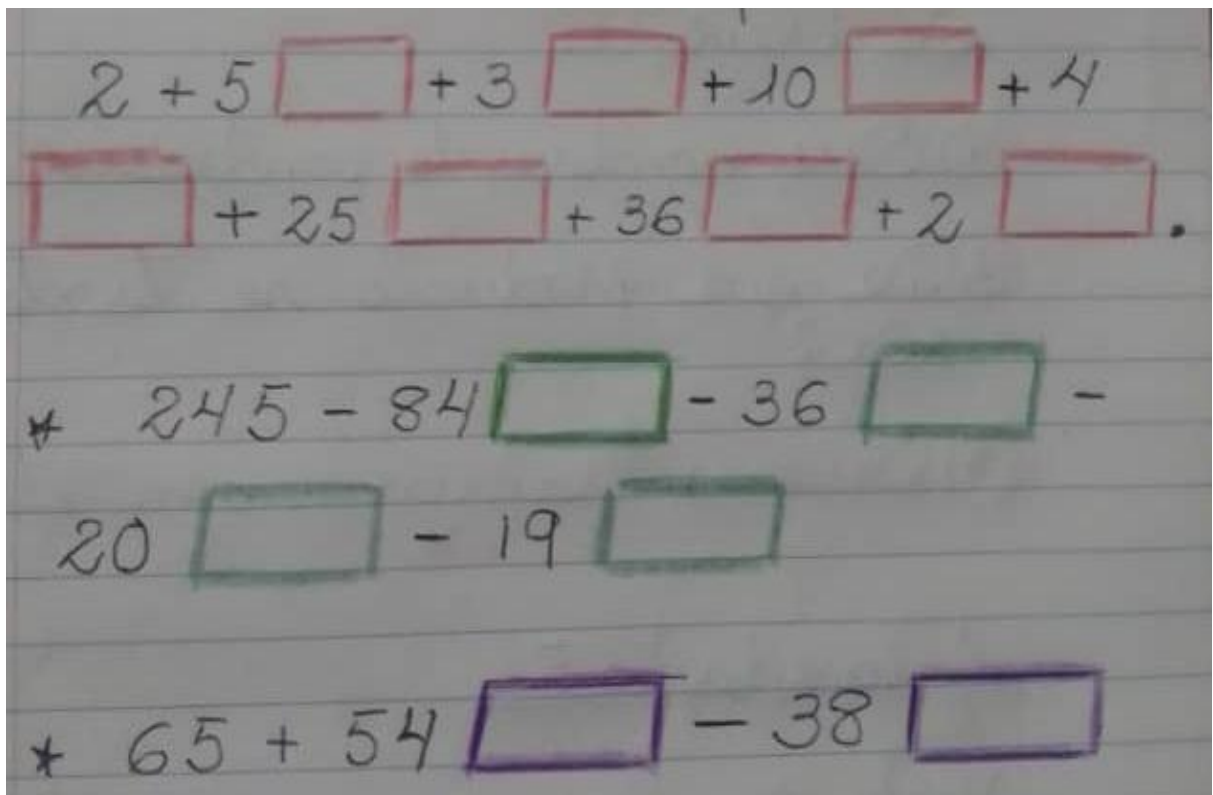 2 + 5 □ + 3 □ + 10 □ + 4
□ + 25 □ + 36 □ + 2 □ .
* 245 - 84 □ - 36 □ -
20 □ - 19 □
* 65 + 54 □ - 38 □